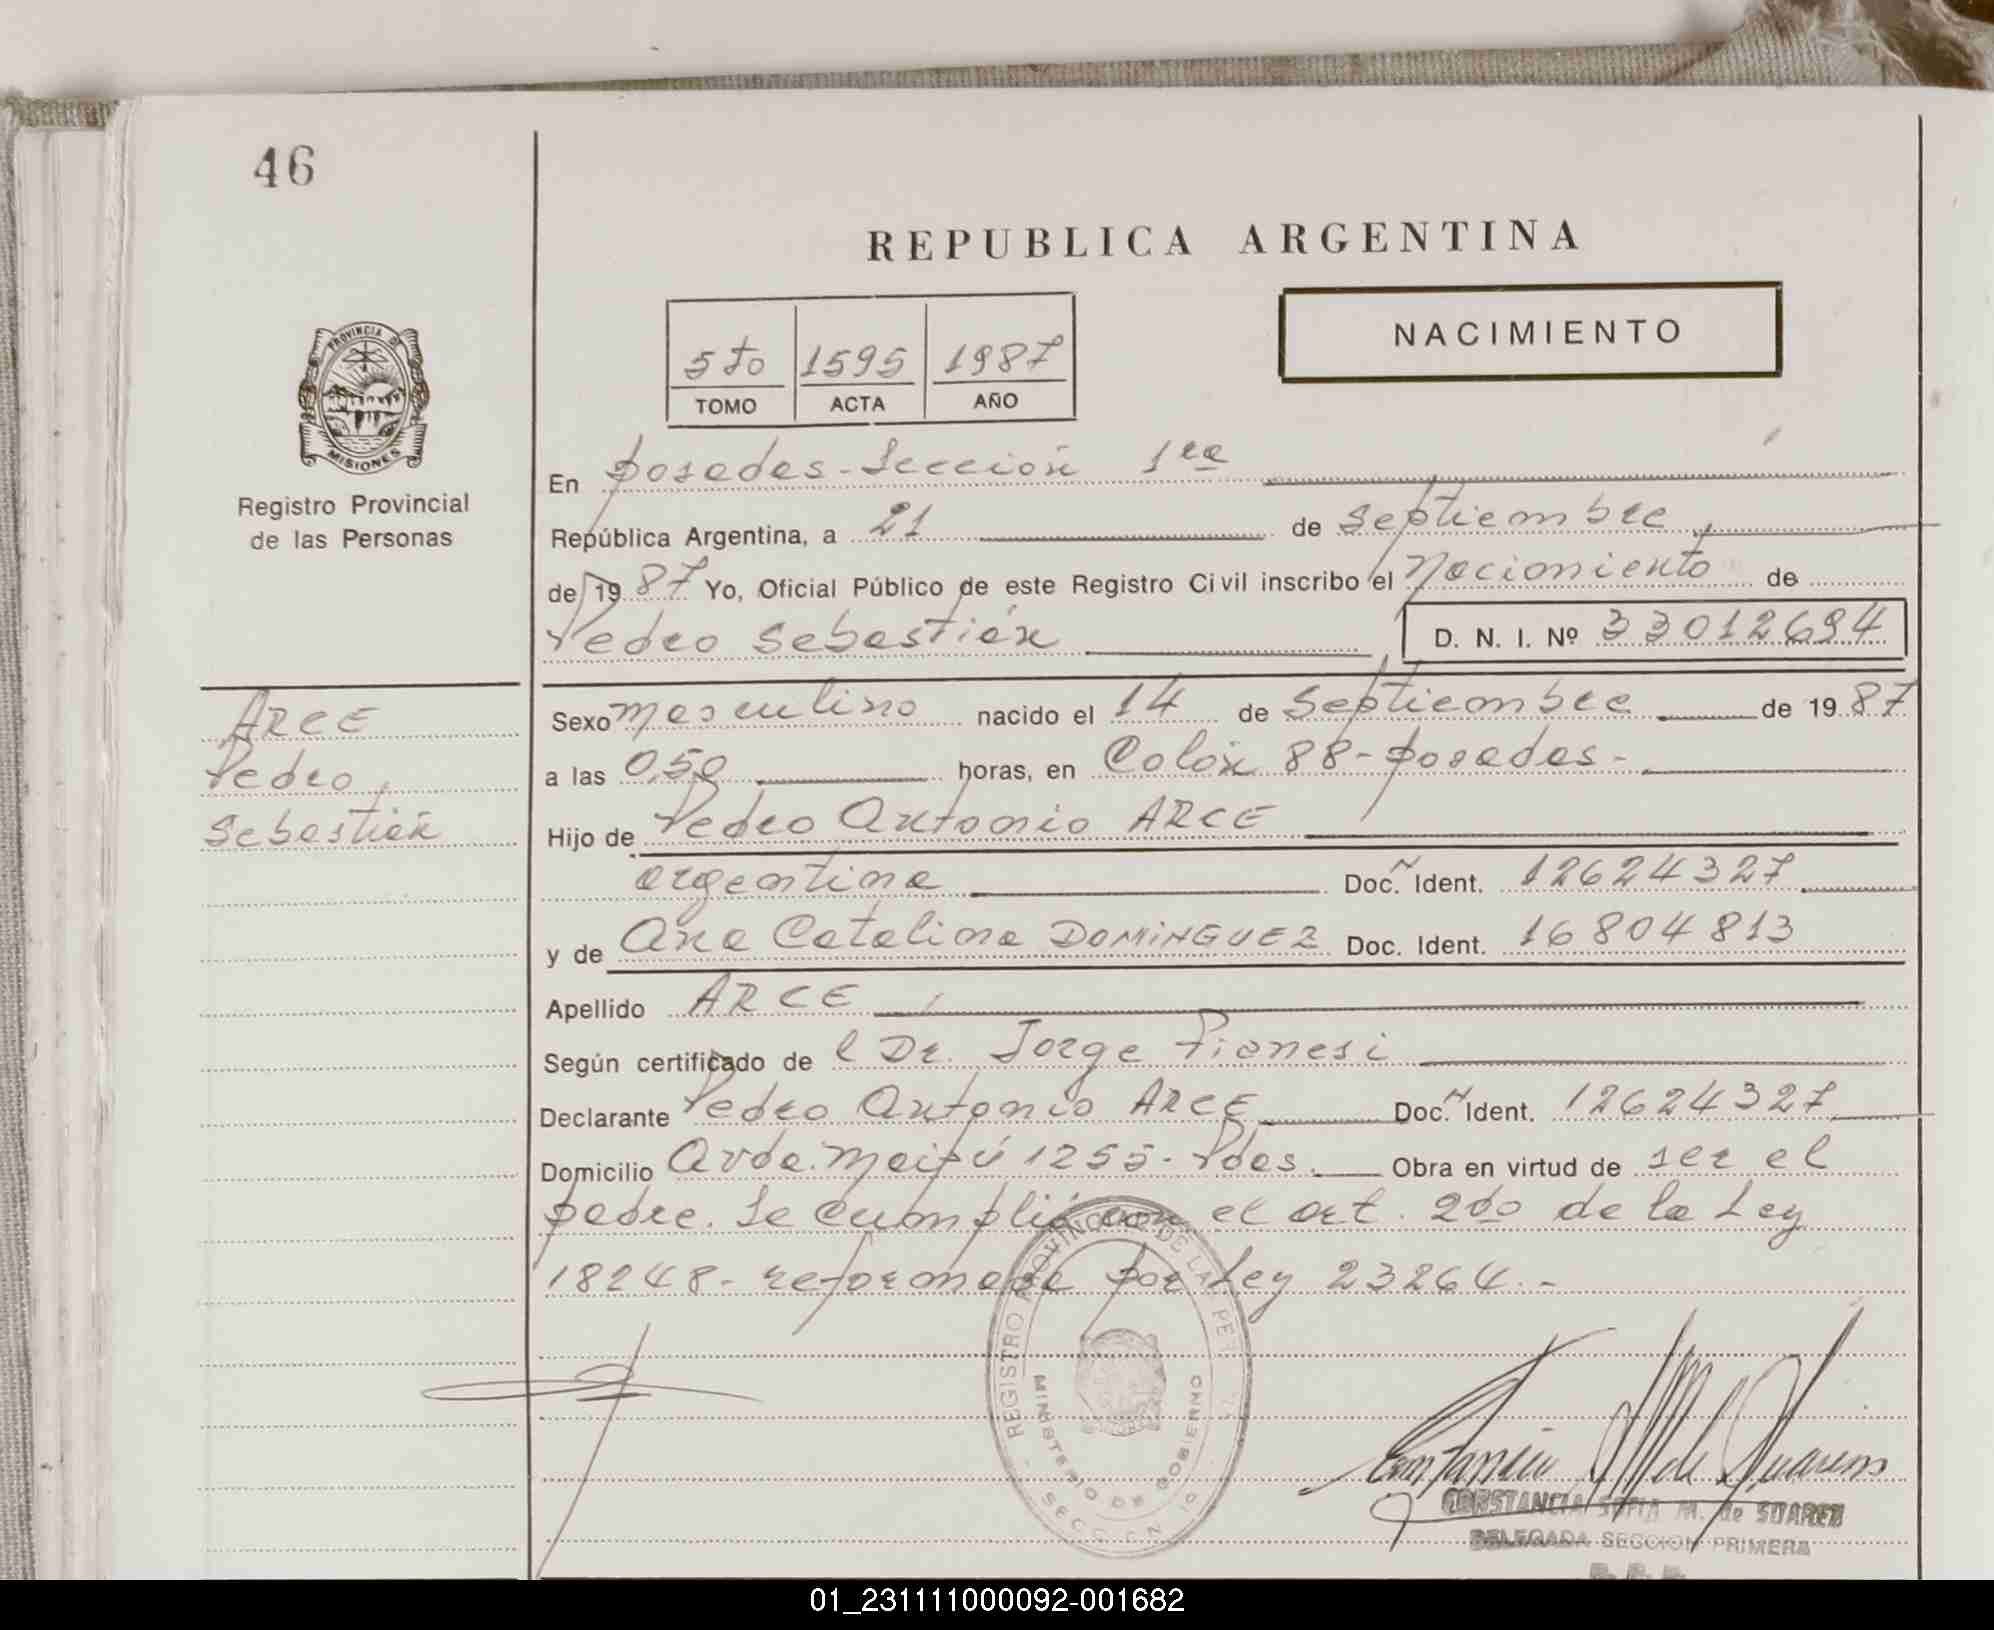 46
REPUBLICA ARGENTINA
NACIMIENTO
5to 1595 1987
TOMO ACTA AÑO
PROVINCIA DE
MISIONES
Registro Provincial
de las Personas
En Posadas - Sección 1ra
República Argentina, a 21 de septiembre
de 1987 Yo, Oficial Público de este Registro Civil inscribo el Nacimiento de
Pedro Sebastián D. N. I. Nº 33012694
ARCE
Pedro
Sebastián
Sexo masculino nacido el 14 de septiembre de 1987
a las 0,50 horas, en Colón 88 - Posadas -
Hijo de Pedro Antonio ARCE
argentina Doc. Ident. 12624327
y de Ana Catalina DOMINGUEZ Doc. Ident. 16804813
Apellido ARCE
Según certificado de l Dr. Jorge Pianesi
Declarante Pedro Antonio ARCE Doc. Ident. 12624327
Domicilio Avda. Maipú 1255 - Pdas. Obra en virtud de ser el
padre. Se cumplió con el art. 2do de la Ley
18248 - reformada por Ley 23264. -
REGISTRO PROVINCIAL DE LAS PER
MINISTERIO DE GOBIERNO
CONSTANCIA SOFIA M. de SUAREZ
DELEGADA SECCION PRIMERA
01_231111000092-001682